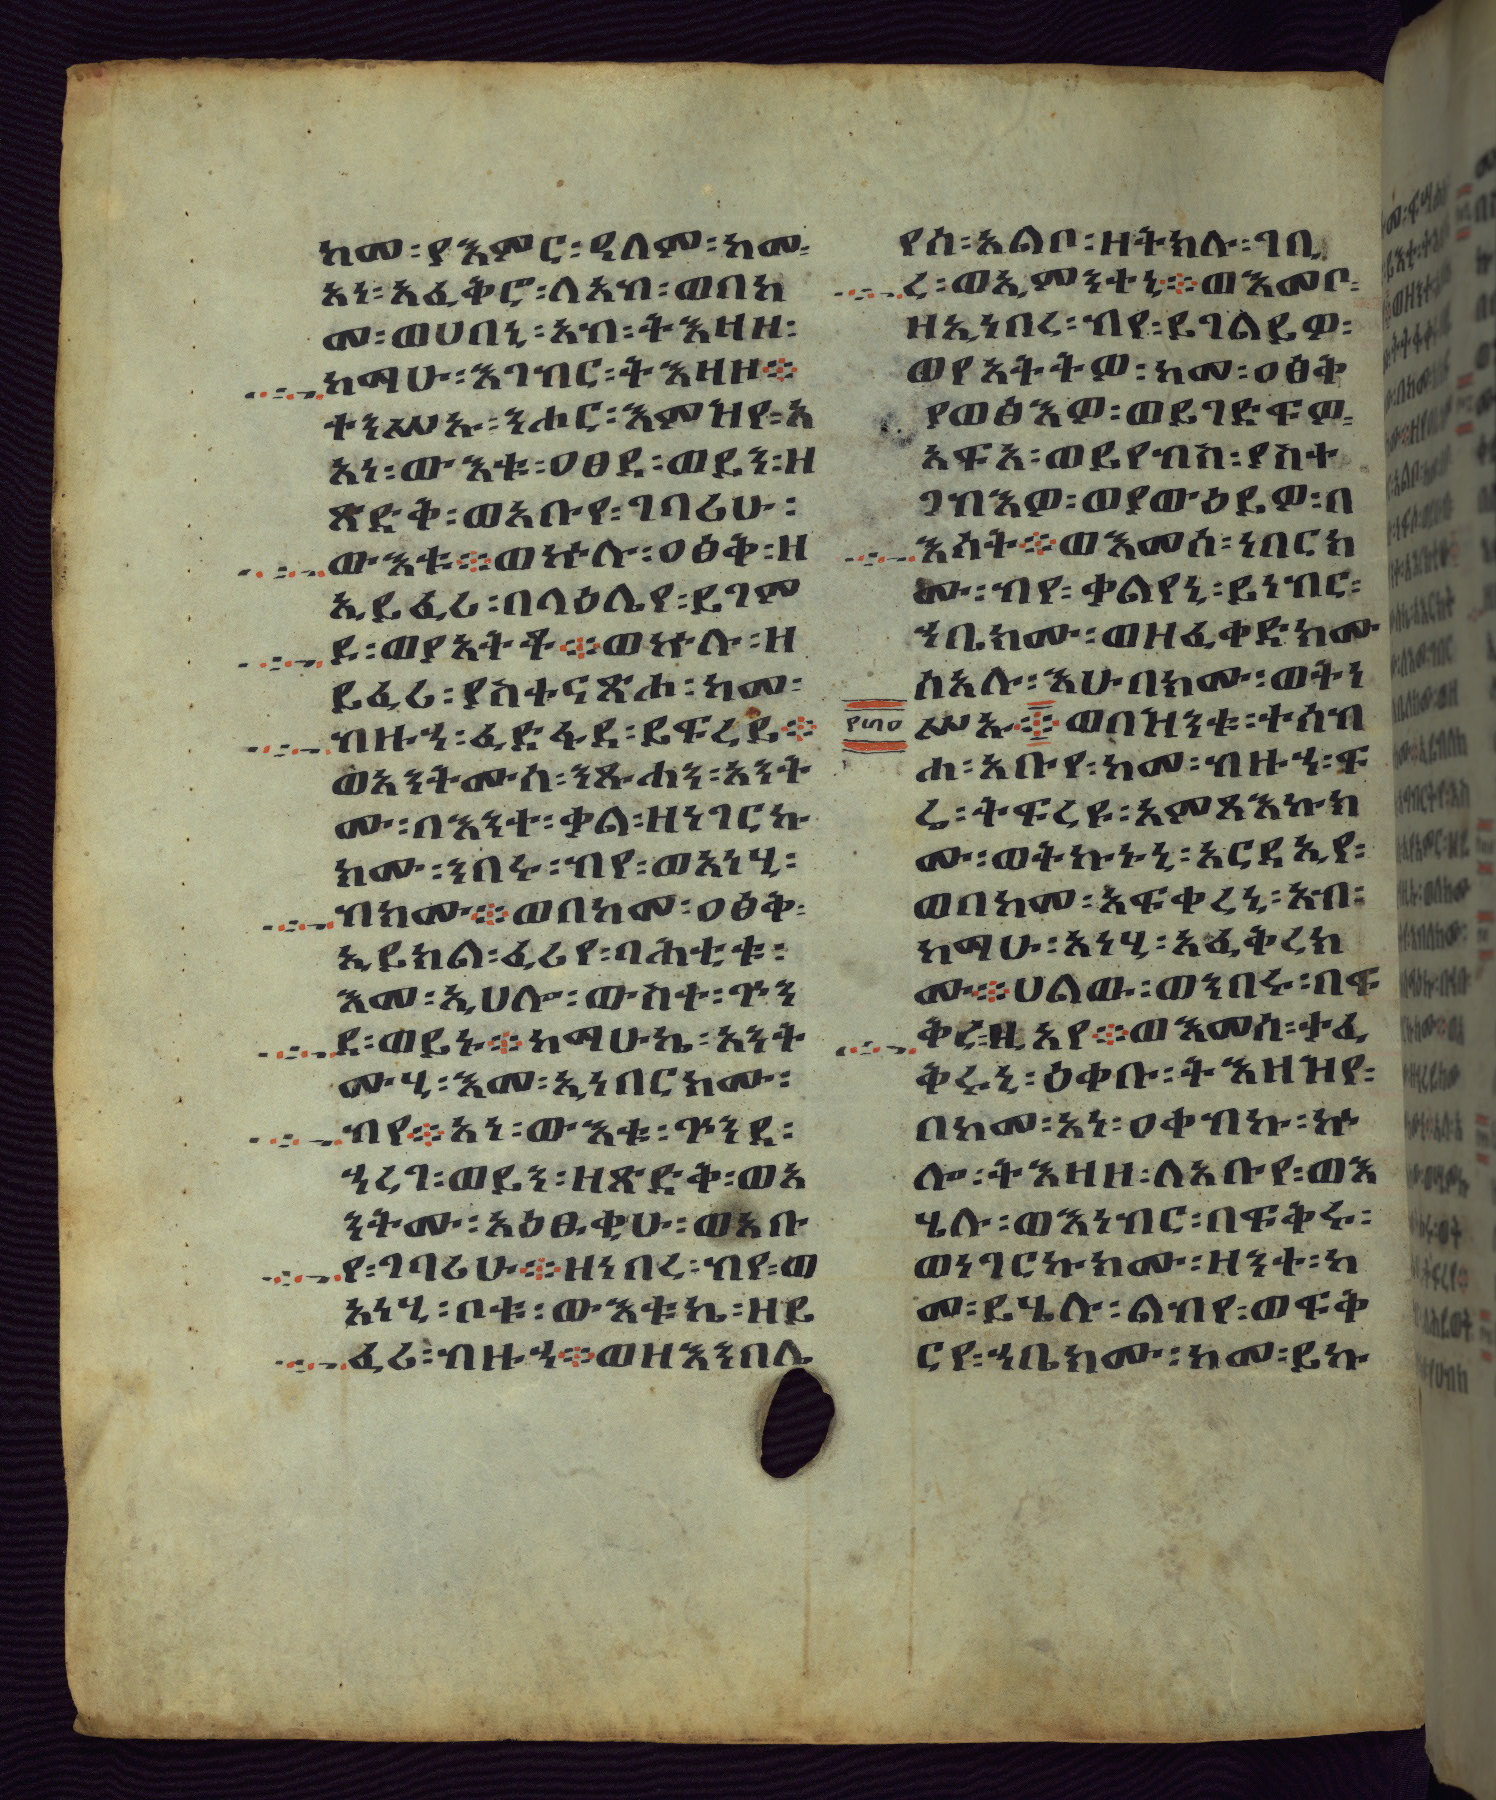 ከመ፡ያእምር፡ዓለም፡ከመ፡
አነ፡አፈቅሮ፡ለአብ፡ወበከ
መ፡ወሀበኒ፡አብ፡ትእዛዘ፡
ከማሁ፡እገብር፡ትእዛዘ።
ተንሥኡ፡ንሑር፡እምዝየ፡አ
አነ፡ውእቱ፡ዐፀደ፡ወይን፡ዘ
ጽድቅ፡ወአቡየ፡ገባሪሁ፡
ውእቱ።ወኵሉ፡ዐፅቅ፡ዘ
ኢይፈሪ፡በላዕሌየ፡ይገም
ድ፡ወያአትቶ።ወኵሉ፡ዘ
ይፈሪ፡ያስተናጽሖ፡ከመ፡
ብዙኀ፡ፈድፋደ፡ይፍረይ።
ወአንትሙሰ፡ንጹሓን፡አንት
ሙ፡በእንተ፡ቃል፡ዘነገርኩ
ክሙ፡ንበሩ፡ብየ፡ወአነሂ፡
ብክሙ።ወበከመ፡ዐፅቅ፡
ኢይክል፡ፈሪየ፡ባሕቲቱ፡
እመ፡ኢሀሎ፡ውስተ፡ጕን
ደ፡ወይኑ።ከማሁኬ፡አንት
ሙሂ፡እመ፡ኢነበርክሙ፡
ብየ።አነ፡ውእቱ፡ጕንደ፡
ሐረገ፡ወይን፡ዘጽድቅ፡ወአ
ንትሙ፡አዕፁቂሁ፡ወአቡ
የ፡ገባሪሁ።ዘነበረ፡ብየ፡ወ
አነሂ፡ቦቱ፡ውእቱኬ፡ዘይ
ፈሪ፡ብዙኀ።ወዘእንበሌ
የሰ፡አልቦ፡ዘትክሉ፡ገቢ
ረ፡ወኢምንተኒ።ወእመቦ፡
ዘኢነበረ፡ብየ፡ይገልይዎ፡
ወየአትትዎ፡ከመ፡ዐፅቅ
የወፅእዎ፡ወይገድፍዎ፡
አፍአ፡ወይየብስ፡ያስተ
ጋብእዎ፡ወያውዕይዎ፡በ
እሳት።ወእመሰ፡ነበርክ
ሙ፡ብየ፡ቃልየኒ፡ይነብር፡
ኀቤክሙ፡ወዘፈቀድክሙ
ሰአሉ፡እሁበክሙ፡ወትነ
ሥኡ።ወበዝንቱ፡ተሰብ
ሐ፡አቡየ፡ከመ፡ብዙኀ፡ፍ
ሬ፡ትፍረዩ፡እምጻእኩክ
ሙ፡ወትኩኑኒ፡አርዳኢየ፡
ወበከመ፡አፍቀረኒ፡አብ፡
ከማሁ፡አነሂ፡አፈቅረክ
ሙ።ሀልው፡ወንበሩ፡በፍ
ቅረ፡ዚአየ።ወእመሰ፡ተፈ
ቅሩኒ፡ዕቀቡ፡ትእዛዝየ፡
በከመ፡አነ፡ዐቀብኩ፡ኵ
ሎ፡ትእዛዘ፡ለአቡየ፡ወእ
ሄሉ፡ወእነብር፡በፍቅሩ፡
ወነገርኩክሙ፡ዘንተ፡ከ
መ፡ይሄሉ፡ልብየ፡ወፍቅ
ርየ፡ኀቤክሙ፡ከመ፡ይኩ